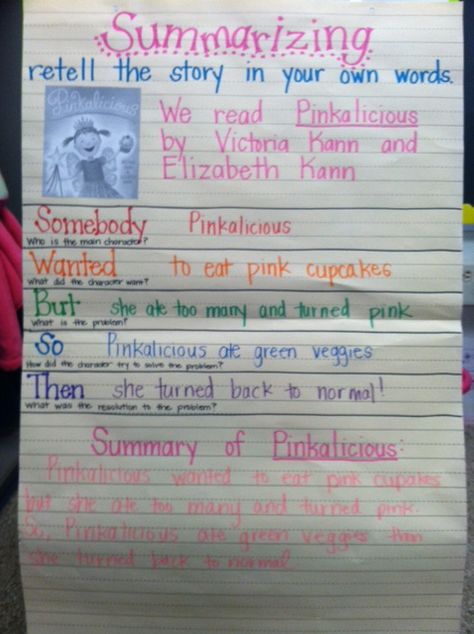 Summarizing
retell the story in your own words.
Pinkalicious
We read Pinkalicious
by Victoria Kann and
Elizabeth Kann
Somebody Pinkalicious
Who is the main character?
Wanted to eat pink cupcakes
What did the character want?
But she ate too many and turned pink
What is the problem?
So Pinkalicious ate green veggies
How did the character try to solve the problem?
Then she turned back to normal!
What was the resolution to the problem?
Summary of Pinkalicious:
Pinkalicious wanted to eat pink cupcakes
but she ate too many and turned pink.
So, Pinkalicious ate green veggies then
she turned back to normal.